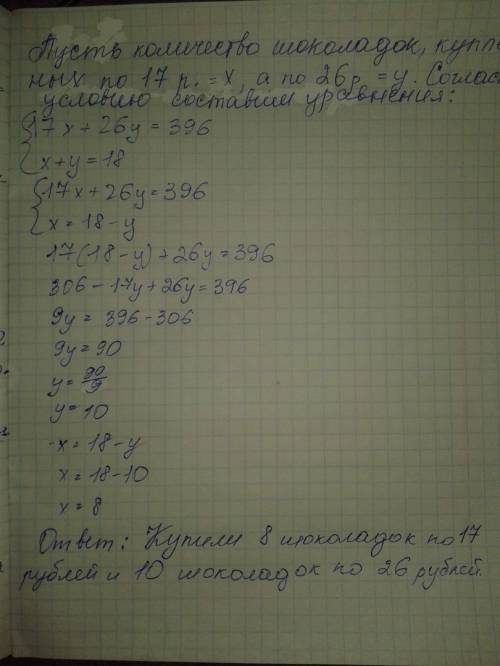 Пусть количество шоколадок, купле
ных по 17 р. = x, а по 26 р. = y. Соглас
условию составим уравнения:
{17x + 26y = 396
{x + y = 18
{17x + 26y = 396
{x = 18 - y
17(18 - y) + 26y = 396
306 - 17y + 26y = 396
9y = 396 - 306
9y = 90
y = 90/9
y = 10
x = 18 - y
x = 18 - 10
x = 8
Ответ: Купили 8 шоколадок по 17
рублей и 10 шоколадок по 26 рублей.